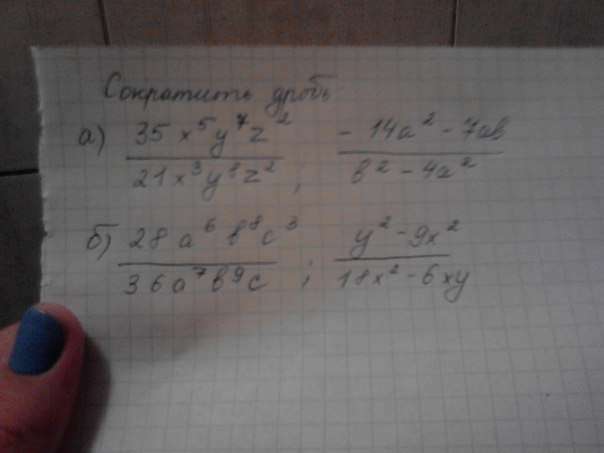 Сократить дробь
а) 35x⁵y⁷z² / 21x³y⁸z² ; -14a² - 7ab / b² - 4a²
б) 28a⁶b⁸c³ / 36a⁷b⁹c ; y² - 9x² / 18x² - 6xy